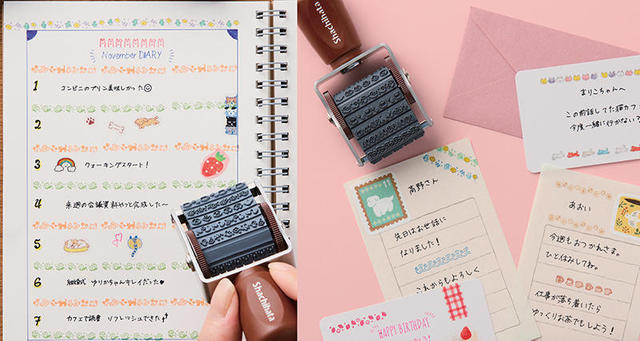 November DIARY
1 コンビニのプリン美味しかった
2
3 ウォーキングスタート！
4 来週の会議資料やっと完成した〜
5
6 ゆりかちゃんキレイだった♥
7 カフェで読書 リフレッシュできた
Shachihata
Shachihata
まりこちゃんへ
この前話してた猫カフェ
今度一緒に行かない？
高野さん
先日はお世話に
なりました！
これからもよろしく
あおい
今週もおつかれさま。
ひと休みしてね。
仕事が落ち着いたら
ゆっくりお茶でもしよう！
HAPPY BIRTHDAY